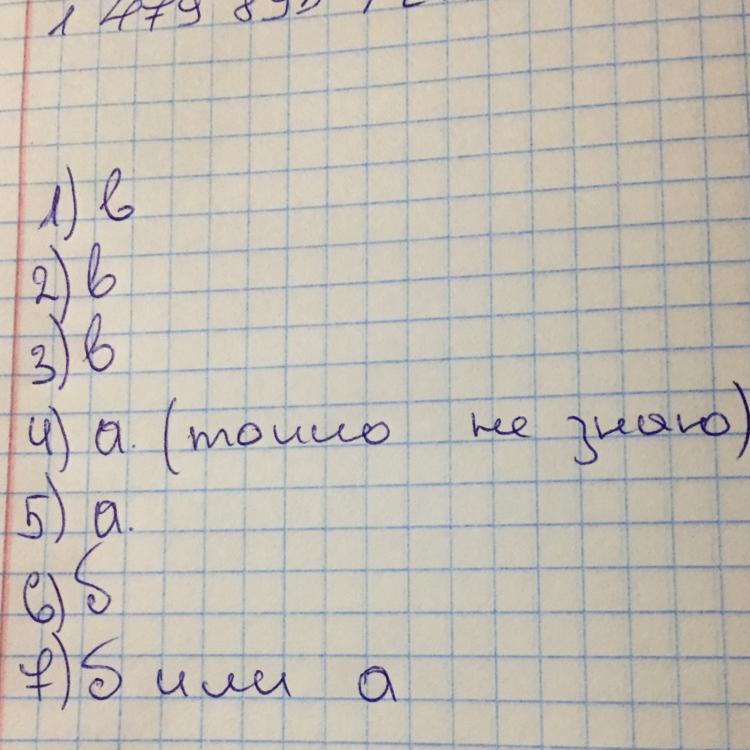 1 479 893
1) в
2) в
3) в
4) а. (точно не знаю)
5) а.
6) б
7) б или а